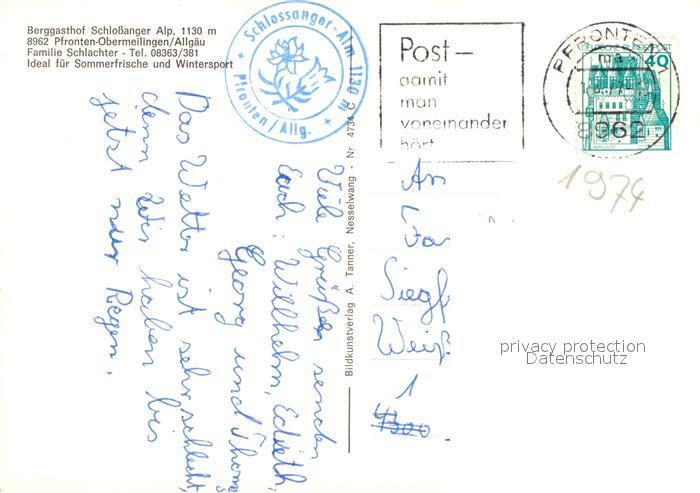 Berggasthof Schloßanger Alp, 1130 m
8962 Pfronten-Obermeilingen/Allgäu
Familie Schlachter - Tel. 08363/381
Ideal für Sommerfrische und Wintersport
Schlossanger-Alm 1130 m
Pfronten/Allg.
Post-
damit
man
voneinander
hört
PFRONTEN 1
8962
DEUTSCHE BUNDESPOST
40
1974
Viele Grüße senden
Euch: Willhelm, Edieth,
Georg und Thom
Das Wetter ist sehr schlecht,
denn Wir haben bis
jetzt nur Regen.
Bildkunstverlag A. Tanner, Nesselwang - Nr. 4734 C
An
Fa
Siegf
Weiß
1
4300
privacy protection
Datenschutz